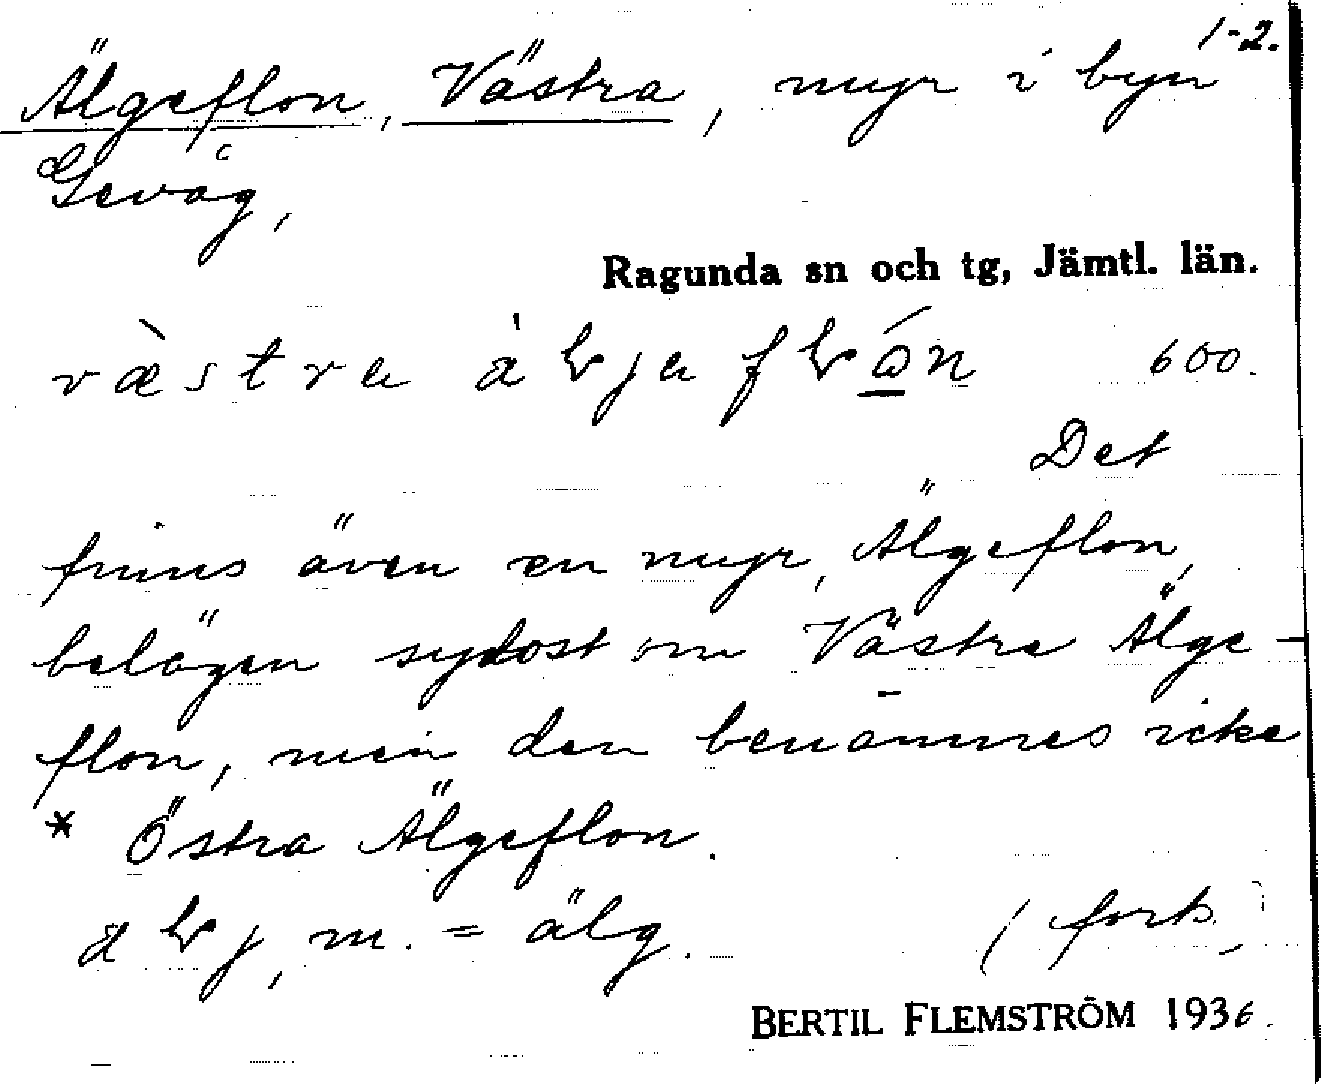 1-2.
Älgeflon, Västra, myr i byn
Gevåg,
Ragunda sn och tg, Jämtl. län.
væ̀stra 600.
Det
finns även en myr, Älgeflon,
belägen sydost om Västra Älge-
flon, men den benämnes icke
* Östra Älgeflon.
m. = älg.
(forts.)
BERTIL FLEMSTRÖM 1936.